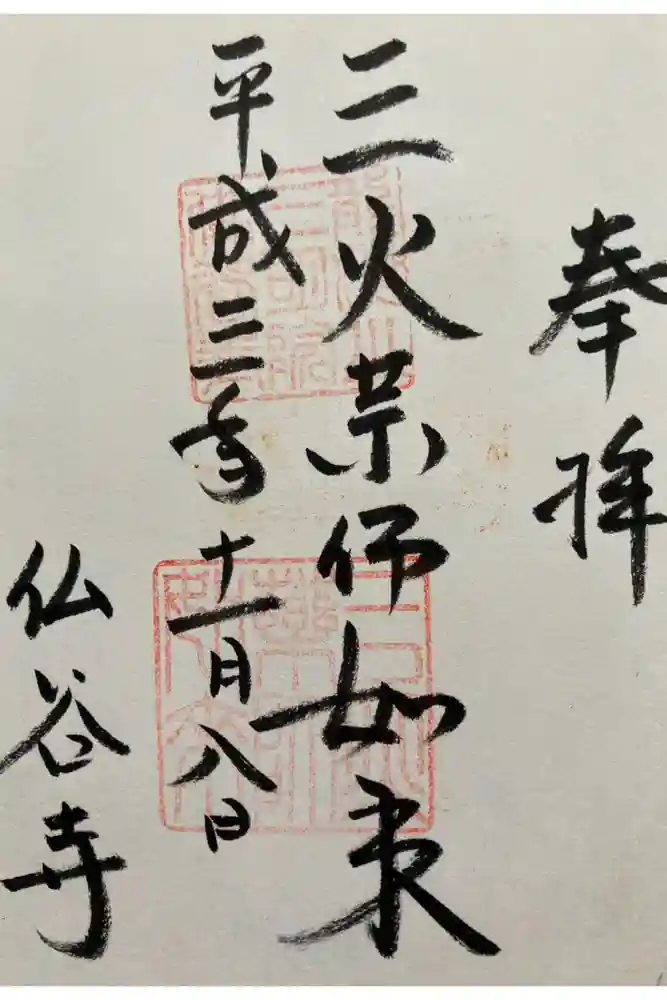 奉拝
三火薬師如来
平成三年十一月八日
仏谷寺